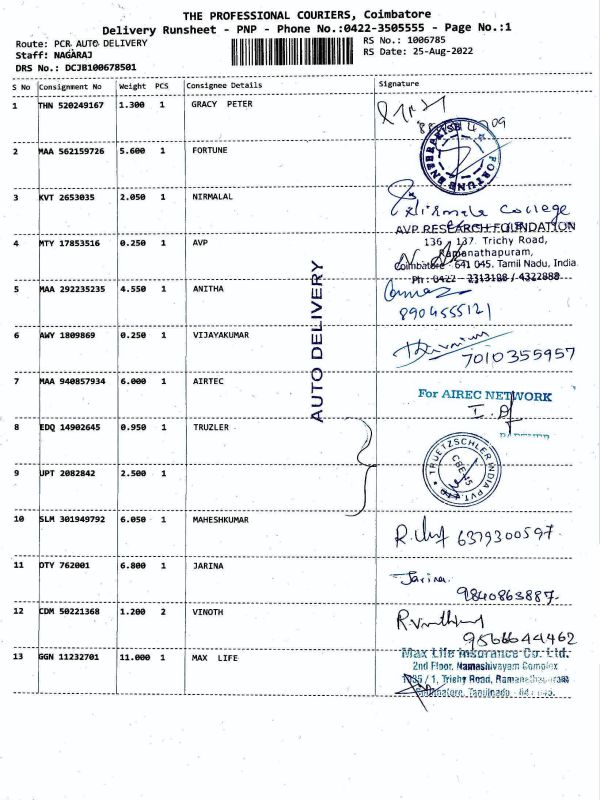 THE PROFESSIONAL COURIERS, Coimbatore
Delivery Runsheet - PNP - Phone No.:0422-3505555 - Page No.:1
Route: PCR AUTO DELIVERY
Staff: NAGARAJ
DRS No.: DCJB100678501
RS No.: 1006785
RS Date: 25-Aug-2022
S No Consignment No Weight PCS Consignee Details Signature
1 THN 520249167 1.300 1 GRACY PETER
2 MAA 562159726 5.600 1 FORTUNE
FORTUNE
3 KVT 2653035 2.050 1 NIRMALAL
Nirmala College
AVP RESEARCH FOUNDATION
136, 137, Trichy Road,
4 MTY 17853516 0.250 1 AVP
Ramanathapuram,
Coimbatore - 641 045. Tamil Nadu, India.
Ph: 0422 - 2313188 / 4322888
5 MAA 292235235 4.550 1 ANITHA
8904555121
6 AWY 1809869 0.250 1 VIJAYAKUMAR
7010355957
7 MAA 940857934 6.000 1 AIRTEC
For AIREC NETWORK
PARTNER
AUTO DELIVERY
8 EDQ 14902645 0.950 1 TRUZLER
TRUETZSCHLER INDIA PVT.
CBE-45
9 UPT 2082842 2.500 1
10 SLM 301949792 6.050 1 MAHESHKUMAR
6379300597
11 DTY 762001 6.800 1 JARINA
Jarina
9840863887
12 CDM 50221368 1.200 2 VINOTH
9566644462
13 GGN 11232701 11.000 1 MAX LIFE
Max Life Insurance Co. Ltd.
2nd Floor, Namashivayam Complex
/ 1, Trichy Road, Ramanathapuram
Coimbatore, Tamilnadu